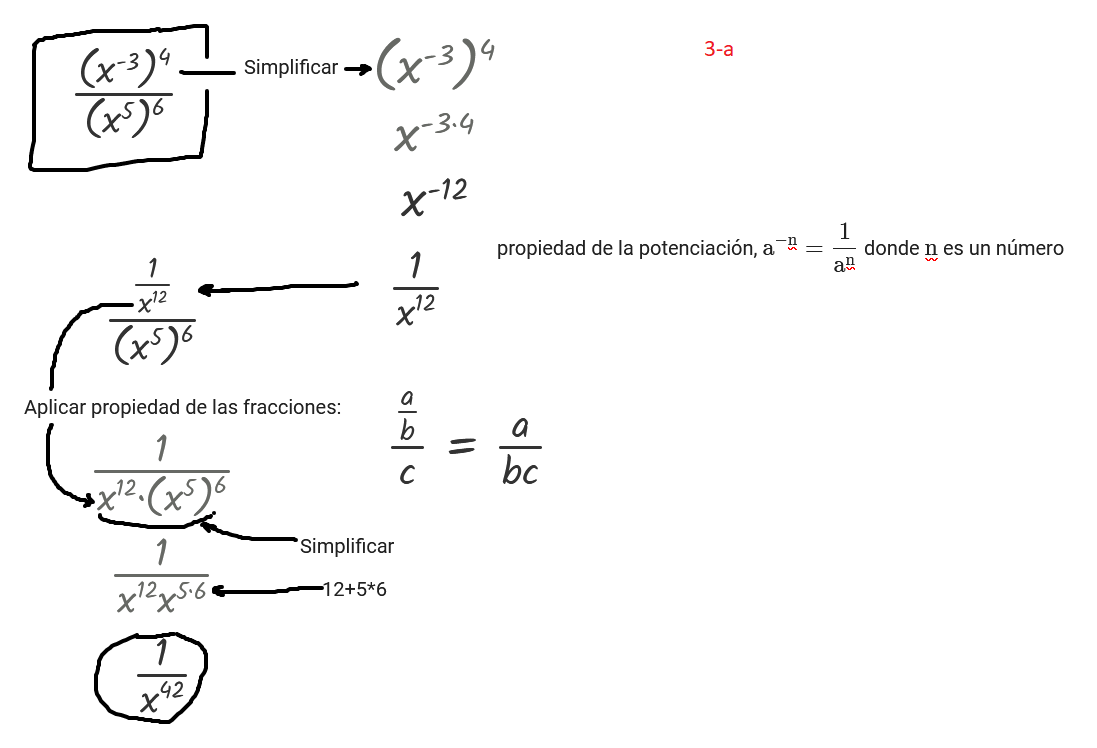 3-a
(x⁻³)⁴ / (x⁵)⁶ Simplificar (x⁻³)⁴
x⁻³·⁴
x⁻¹²
propiedad de la potenciación, a⁻ⁿ = 1/aⁿ donde n es un número
1/x¹²
(1/x¹²) / (x⁵)⁶
Aplicar propiedad de las fracciones:
(a/b) / c = a/bc
1 / x¹²·(x⁵)⁶
Simplificar
1 / x¹²x⁵·⁶
12+5*6
1 / x⁴²